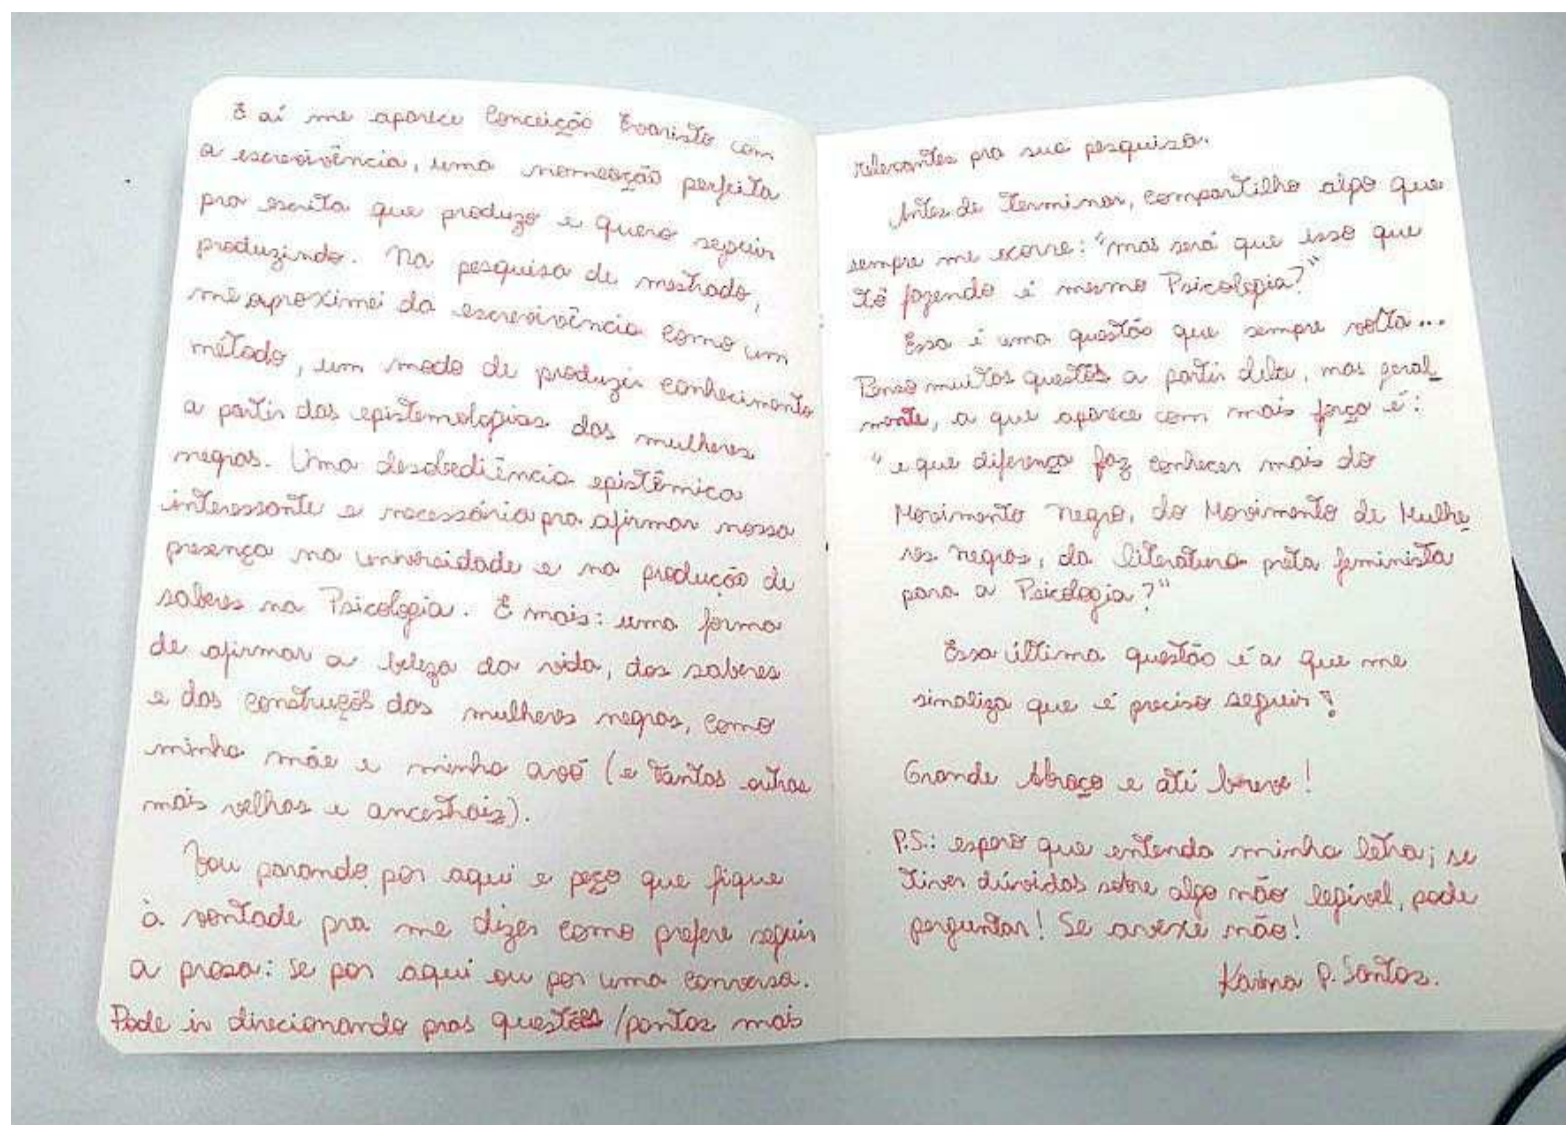 E aí me aparece Conceição Evaristo com
a escrevivência, uma nomeação perfeita
pra escrita que produzo e quero seguir
produzindo. Na pesquisa de mestrado,
me aproximei da escrevivência como um
método, um modo de produzir conhecimento
a partir das epistemologias das mulheres
negras. Uma desobediência epistêmica
interessante e necessária pra afirmar nossa
presença na universidade e na produção de
saberes na Psicologia. E mais: uma forma
de afirmar a beleza da vida, dos saberes
e das construções das mulheres negras, como
minha mãe e minha avó (e tantas outras
mais velhas e ancestrais).
Vou parando por aqui e peço que fique
à vontade pra me dizer como prefere seguir
a prosa: se por aqui ou por uma conversa.
Pode ir direcionando pras questões/pontos mais
relevantes pra sua pesquisa.
Antes de terminar, compartilho algo que
sempre me ocorre: "mas será que isso que
tô fazendo é mesmo Psicologia?"
Essa é uma questão que sempre volta...
Penso muitas questões a partir dela, mas geral
mente, a que aparece com mais força é:
"e que diferença faz conhecer mais do
Movimento negro, do Movimento de Mulhe
res negras, da literatura preta feminista
para a Psicologia?"
Essa última questão é a que me
sinaliza que é preciso seguir!
Grande Abraço e até breve!
P.S.: espero que entenda minha letra; se
tiver dúvidas sobre algo não legível, pode
perguntar! Se avexe não!
Karina P. Santos.